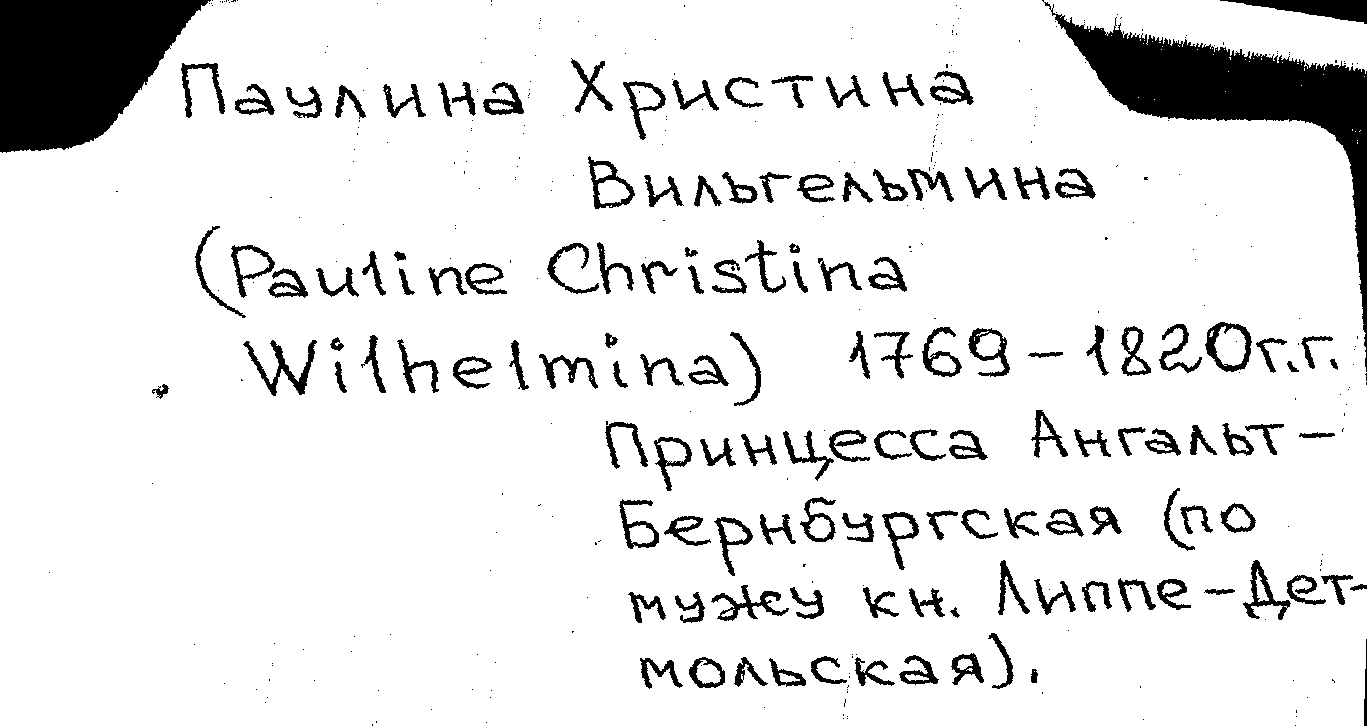 Паулина Христина
Вильгельмина
(Pauline Christina
Wilhelmina) 1769-1820г.г.
Принцесса Ангальт-
Бернбургская (по
мужу кн. Липпе-Дет-
мольская).